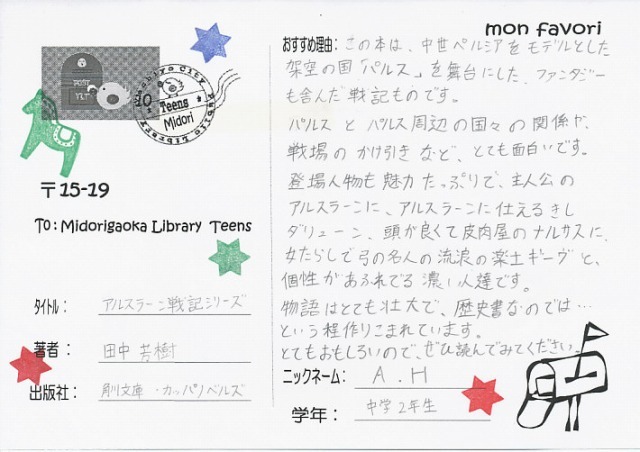 mon favori
POST
YLT
Yachiyo City Public Library
10
Teens
Midori
〒15-19
To: Midorigaoka Library Teens
タイトル: アルスラーン戦記シリーズ
著者: 田中芳樹
出版社: 角川文庫・カッパノベルズ
おすすめ理由: この本は、中世ペルシアをモデルとした
架空の国「パルス」を舞台にした、ファンタジー
も含んだ戦記ものです。
パルスとパルス周辺の国々の関係や、
戦場のかけ引きなど、とても面白いです。
登場人物も魅力たっぷりで、主人公の
アルスラーンに、アルスラーンに仕えるきし
ダリューン、頭が良くて皮肉屋のナルサスに、
女たらしで弓の名人の流浪の楽士ギーヴと、
個性があふれでる濃い人達です。
物語はとても壮大で、歴史書なのでは…
という程作りこまれています。
とてもおもしろいので、ぜひ読んでみてください。
ニックネーム: A.H
学年: 中学2年生